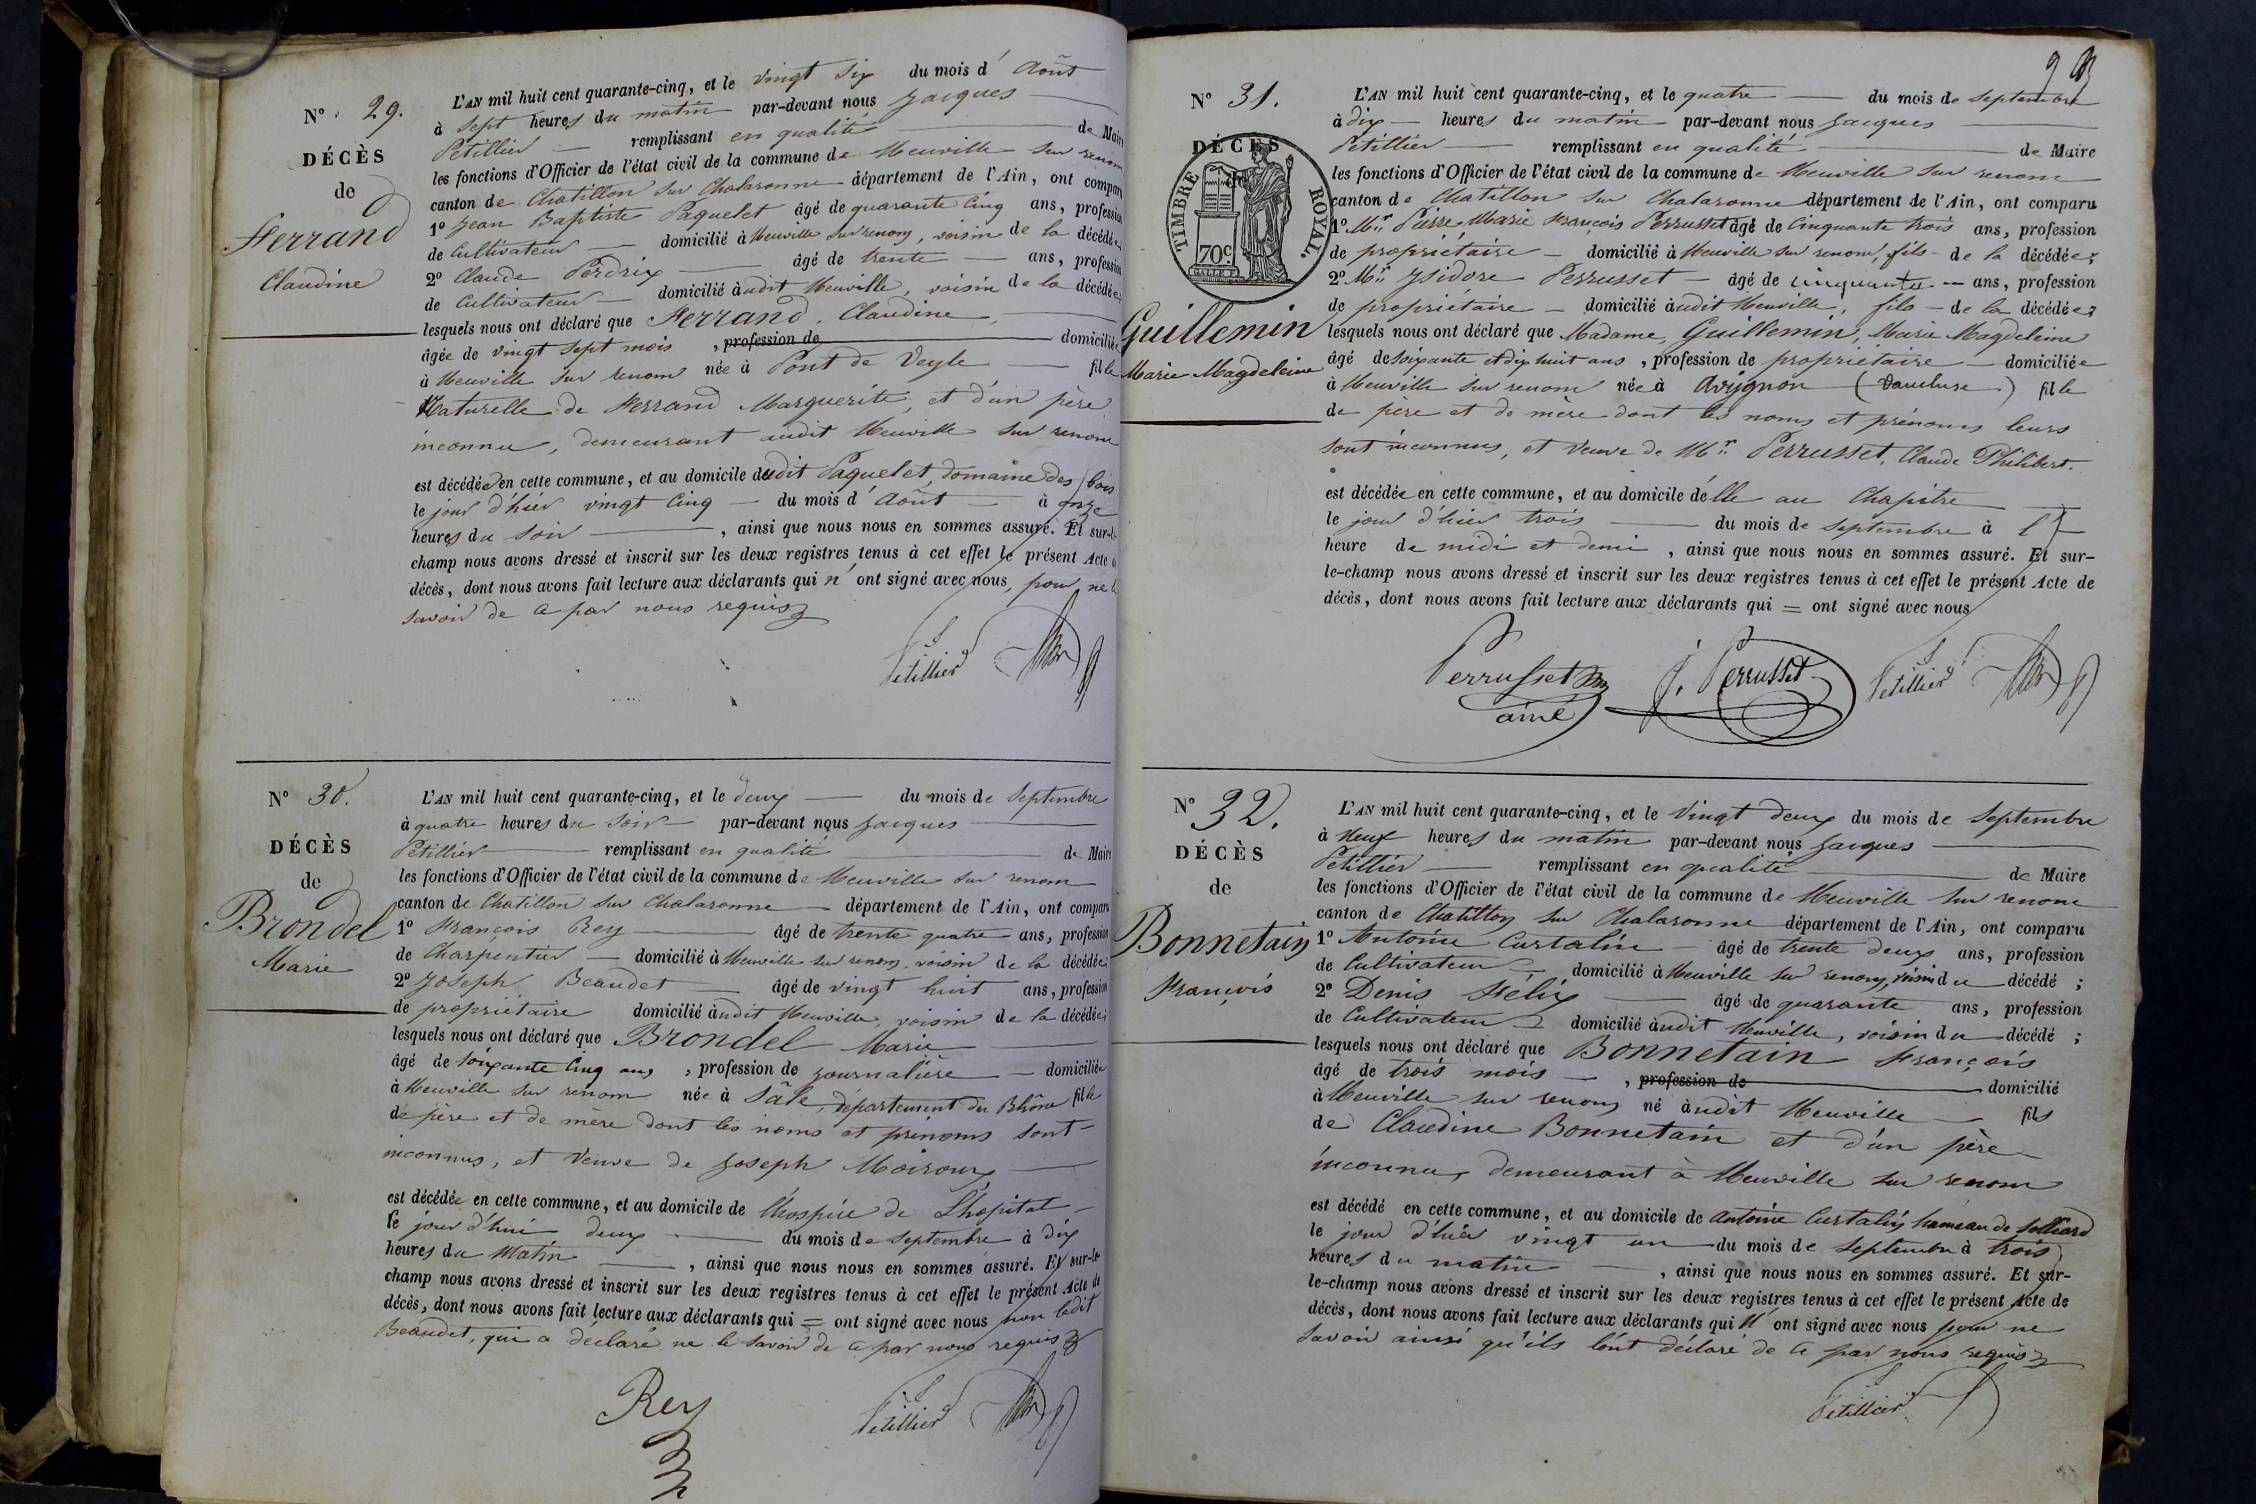 N° 29.
DÉCÈS
de
Ferrand
Claudine
L'AN mil huit cent quarante-cinq, et le vingt six du mois d'Août
à sept heures du matin par-devant nous Jacques
Petillier remplissant en qualité de Maire
les fonctions d'Officier de l'état civil de la commune de Neuville sur renom
canton de Chatillon sur Chalaronne département de l'Ain, ont comparu
1° Jean Baptiste Paquelet âgé de quarante cinq ans, profession
de Cultivateur domicilié à Neuville sur renom, voisin de la décédée;
2° Claude Perdrix âgé de trente ans, profession
de Cultivateur domicilié audit Neuville, voisin de la décédée;
lesquels nous ont déclaré que Ferrand, Claudine,
âgée de vingt sept mois, profession de domiciliée
à Neuville sur renom née à Pont de Veyle fille
Naturelle de Ferrand Marguerite, et d'un père
inconnu, demeurant audit Neuville sur renom
est décédée en cette commune, et au domicile dudit Paquelet, domaine des bois
le jour d'hier vingt cinq du mois d'Août à onze
heures du soir, ainsi que nous nous en sommes assuré. Et sur-le-
champ nous avons dressé et inscrit sur les deux registres tenus à cet effet le présent Acte de
décès, dont nous avons fait lecture aux déclarants qui n'ont signé avec nous, pour ne le
savoir de ce par nous requis
Petillier
N° 30.
DÉCÈS
de
Brondel
Marie
L'AN mil huit cent quarante-cinq, et le deux du mois de Septembre
à quatre heures du soir par-devant nous Jacques
Petillier remplissant en qualité de Maire
les fonctions d'Officier de l'état civil de la commune de Neuville sur renom
canton de Chatillon sur Chalaronne département de l'Ain, ont comparu
1° François Rey âgé de trente quatre ans, profession
de Charpentier domicilié à Neuville sur renom, voisin de la décédée;
2° Joseph Beaudet âgé de vingt huit ans, profession
de propriétaire domicilié audit Neuville, voisin de la décédée;
lesquels nous ont déclaré que Brondel Marie
âgé de soixante cinq ans, profession de journalière domiciliée
à Neuville sur renom née à Sâle, département du Rhône fille
de père et de mère dont les noms et prénoms sont
inconnus, et veuve de Joseph Moiroux
est décédée en cette commune, et au domicile de l'hospice de L'hopital
le jour d'hui deux du mois de septembre à dix
heures du Matin, ainsi que nous nous en sommes assuré. Et sur-le-
champ nous avons dressé et inscrit sur les deux registres tenus à cet effet le présent Acte de
décès, dont nous avons fait lecture aux déclarants qui = ont signé avec nous non ledit
Beaudet, qui a déclaré ne le savoir de ce par nous requis
Rey
Petillier
N° 31.
DÉCÈS
de
TIMBRE ROYAL.
70c
Guillemin
Marie Magdeleine
L'AN mil huit cent quarante-cinq, et le quatre du mois de septembre
à dix heures du matin par-devant nous Jacques
Petillier remplissant en qualité de Maire
les fonctions d'Officier de l'état civil de la commune de Neuville sur renom
canton de Chatillon sur Chalaronne département de l'Ain, ont comparu
1° Mr. Pierre Marie François Perrusset âgé de cinquante trois ans, profession
de propriétaire domicilié à Neuville sur renom, fils de la décédée;
2° Mr. Ysidore Perrusset âgé de cinquante ans, profession
de propriétaire domicilié audit Neuville, fils de la décédée;
lesquels nous ont déclaré que Madame, Guillemin, Marie Magdeleine
âgé de soixante et dix huit ans, profession de propriétaire domiciliée
à Neuville sur renom née à Avignon (Vaucluse) fille
de père et de mère dont les noms et prénoms leurs
sont inconnus, et veuve de Mr. Perrusset, Claude Philibert.
est décédée en cette commune, et au domicile d'elle au Chapitre
le jour d'hier trois du mois de septembre à l'
heure de midi et demi, ainsi que nous nous en sommes assuré. Et sur-
le-champ nous avons dressé et inscrit sur les deux registres tenus à cet effet le présent Acte de
décès, dont nous avons fait lecture aux déclarants qui = ont signé avec nous
Perrusset
ainé
J. Perrusset
Petillier
N° 32.
DÉCÈS
de
Bonnetain
François
L'AN mil huit cent quarante-cinq, et le vingt deux du mois de septembre
à neuf heures du matin par-devant nous Jacques
Petillier remplissant en qualité de Maire
les fonctions d'Officier de l'état civil de la commune de Neuville sur renom
canton de Chatillon sur Chalaronne département de l'Ain, ont comparu
1° Antoine Curtalin âgé de trente deux ans, profession
de Cultivateur domicilié à Neuville sur renom, voisin du décédé;
2° Denis Félix âgé de quarante ans, profession
de Cultivateur domicilié audit Neuville, voisin du décédé;
lesquels nous ont déclaré que Bonnetain François
âgé de trois mois, profession de domicilié
à Neuville sur renom né audit Neuville fils
de Claudine Bonnetain et d'un père
inconnu, demeurant à Neuville sur renom
est décédé en cette commune, et au domicile de Antoine Curtalin hameau de
le jour d'hier vingt un du mois de septembre à trois
heures du matin, ainsi que nous nous en sommes assuré. Et sur-
le-champ nous avons dressé et inscrit sur les deux registres tenus à cet effet le présent Acte de
décès, dont nous avons fait lecture aux déclarants qui n'ont signé avec nous pour ne
savoir ainsi qu'ils l'ont déclaré de ce par nous requis
Petillier